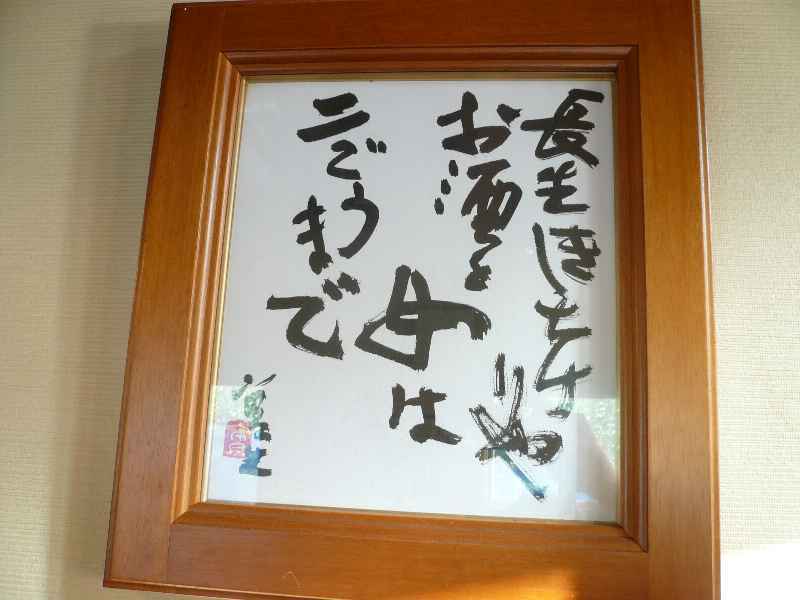 長生きしたけりゃ
お酒と
女は
二ごうまで